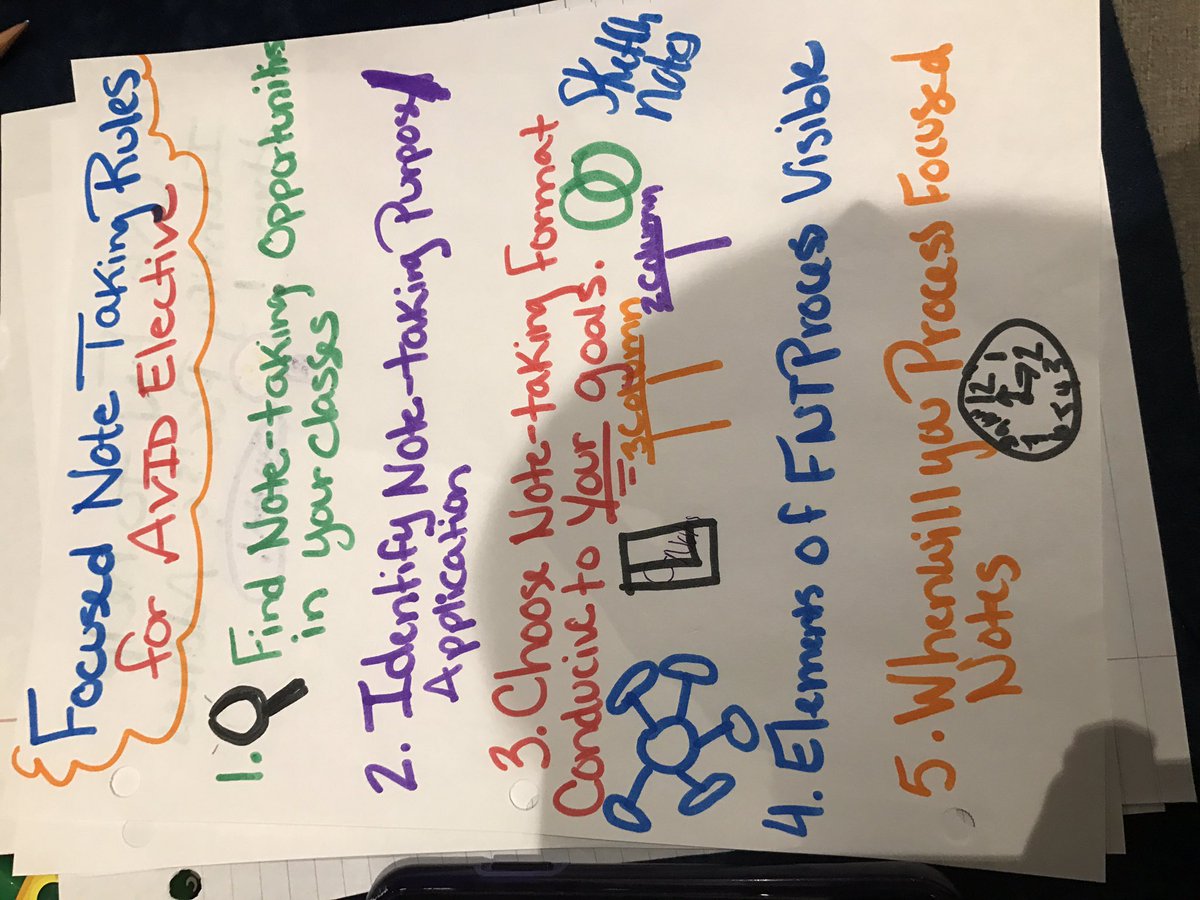 Focused Note Taking Rules
for AVID Elective
1. Find Note-taking opportunities
in your classes
2. Identify Note-taking Purpose/
Application
3. Choose Note-taking Format
Conducive to Your goals.
3 Column
2 Column
Sketch
Notes
4. Elements of FNT Process Visible
5. When will you Process Focused
Notes